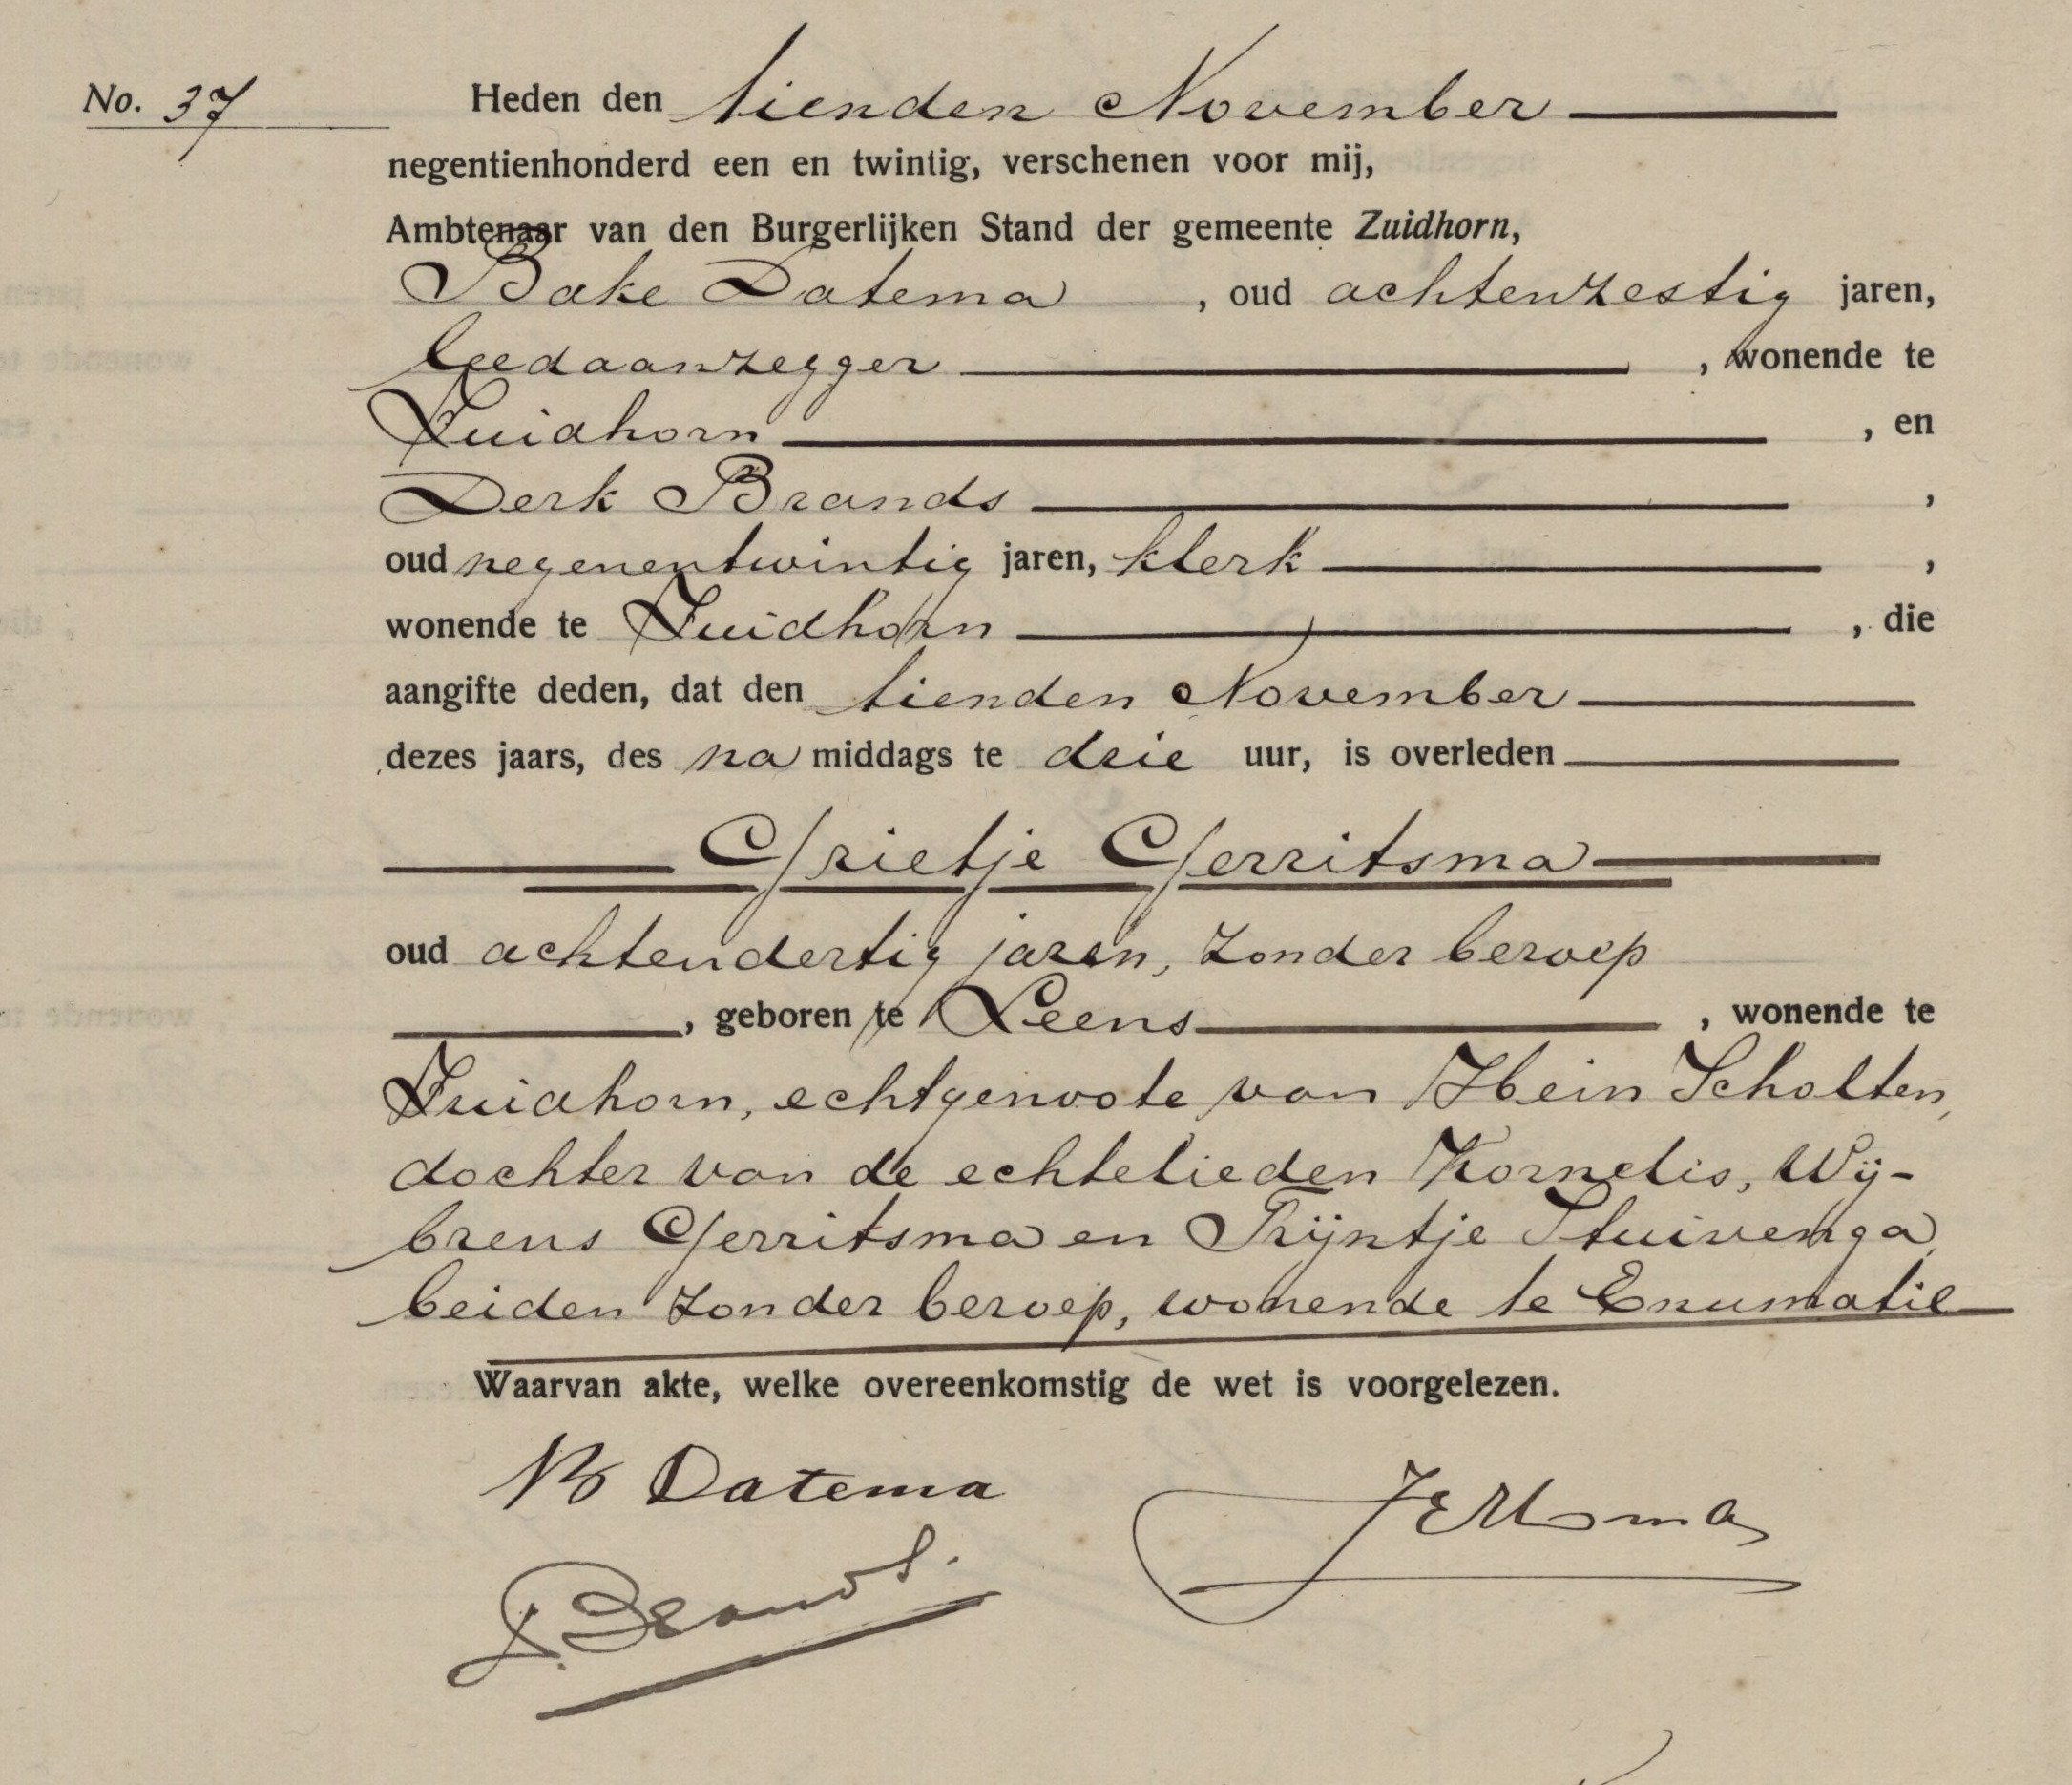 No. 37
Heden den tienden November
negentienhonderd een en twintig, verschenen voor mij,
Ambtenaar van den Burgerlijken Stand der gemeente Zuidhorn,
Bake Datema , oud achtenzestig jaren,
leedaanzegger , wonende te
Zuidhorn , en
Derk Brands ,
oud negenentwintig jaren, klerk ,
wonende te Zuidhorn , die
aangifte deden, dat den tienden November
dezes jaars, des na middags te drie uur, is overleden
Grietje Gerritsma
oud achtendertig jaren, zonder beroep
, geboren te Leens , wonende te
Zuidhorn, echtgenoote van Hein Scholten,
dochter van de echtelieden Kornelis, Wij-
brens Gerritsma en Trijntje Stuivenga,
beiden zonder beroep, wonende te Enumatil
Waarvan akte, welke overeenkomstig de wet is voorgelezen.
B Datema
D. Brands.